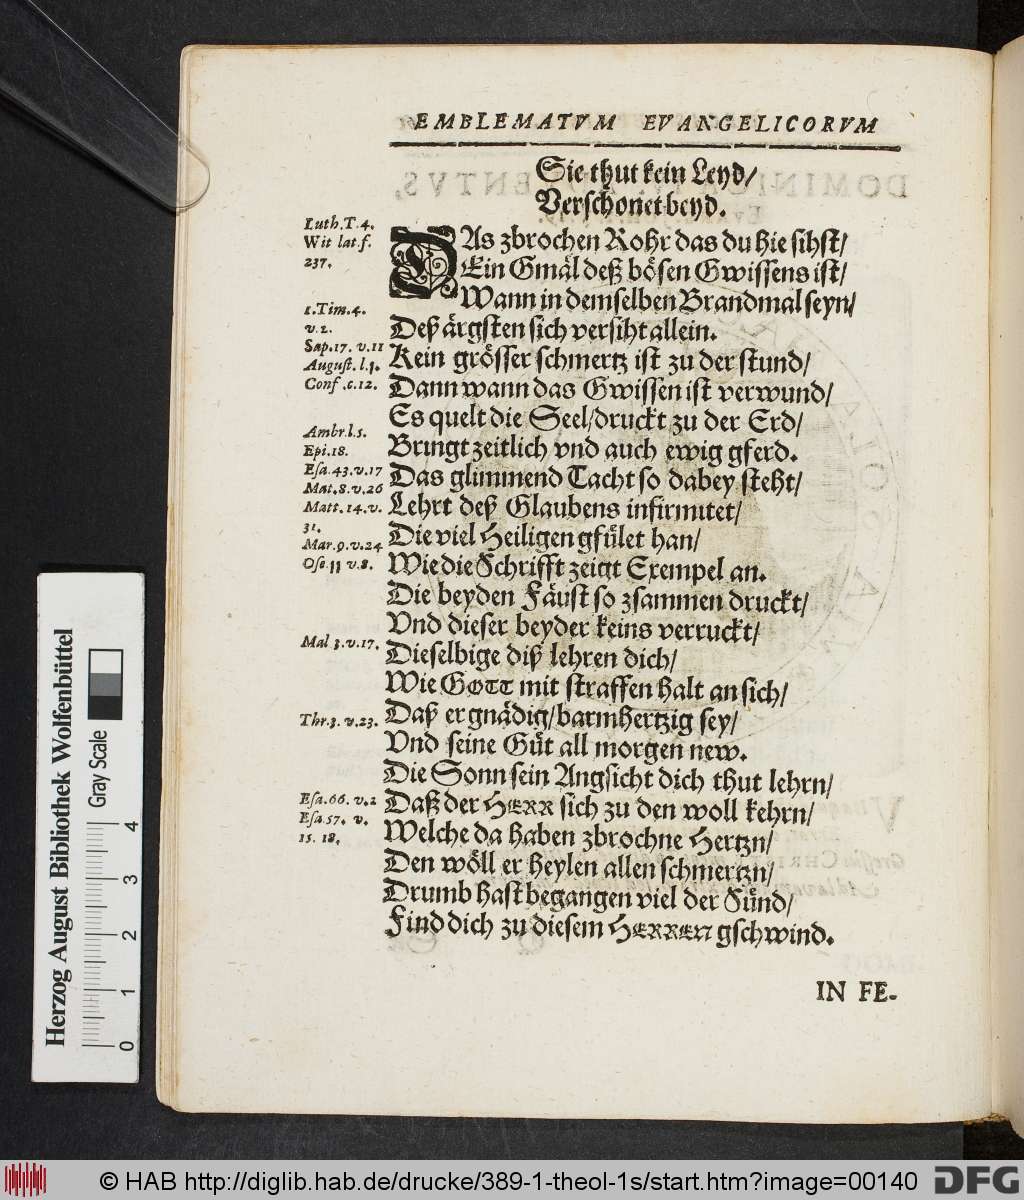 EMBLEMATVM EVANGELICORVM
Sie thut kein Leyd/
Verschonet beyd.
Luth. T. 4.
Wit lat. f.
237.
DAs zbrochen Rohr das du hie sihst/
Ein Gmäl deß bösen Gwissens ist/
Wann in demselben Brandmal seyn/
1. Tim. 4.
v. 2.
Deß ärgsten sich versiht allein.
Sap. 17. v. 11
Kein grösser schmertz ist zu der stund/
August. l. 1.
Conf. c. 12.
Dann wann das Gwissen ist verwund/
Es quelt die Seel/druckt zu der Erd/
Ambr. l. 5.
Epi. 18.
Bringt zeitlich vnd auch ewig gferd.
Esa. 43. v. 17
Das glimmend Tacht so dabey steht/
Mat. 8. v. 26
Matt. 14. v.
31.
Lehrt deß Glaubens infirmitet/
Die viel Heiligen gfület han/
Mar. 9. v. 24
Ose. 11 v. 8.
Wie die Schrifft zeigt Exempel an.
Die beyden Fäust so zsammen druckt/
Vnd dieser beyder keins verruckt/
Mal 3. v. 17.
Dieselbige diß lehren dich/
Wie GOTT mit straffen halt an sich/
Thr. 3. v. 23.
Daß er gnädig/barmhertzig sey/
Vnd seine Güt all morgen new.
Die Sonn sein Angsicht dich thut lehrn/
Esa. 66. v. 2
Daß der HERR sich zu den woll kehrn/
Esa. 57. v.
15. 18.
Welche da haben zbrochne Hertzn/
Den wöll er heylen allen schmertzn/
Drumb hast begangen viel der Sünd/
Find dich zu diesem HERREN gschwind.
IN FE-
Herzog August Bibliothek Wolfenbüttel
Gray Scale
0 1 2 3 4
© HAB http://diglib.hab.de/drucke/389-1-theol-1s/start.htm?image=00140
DFG